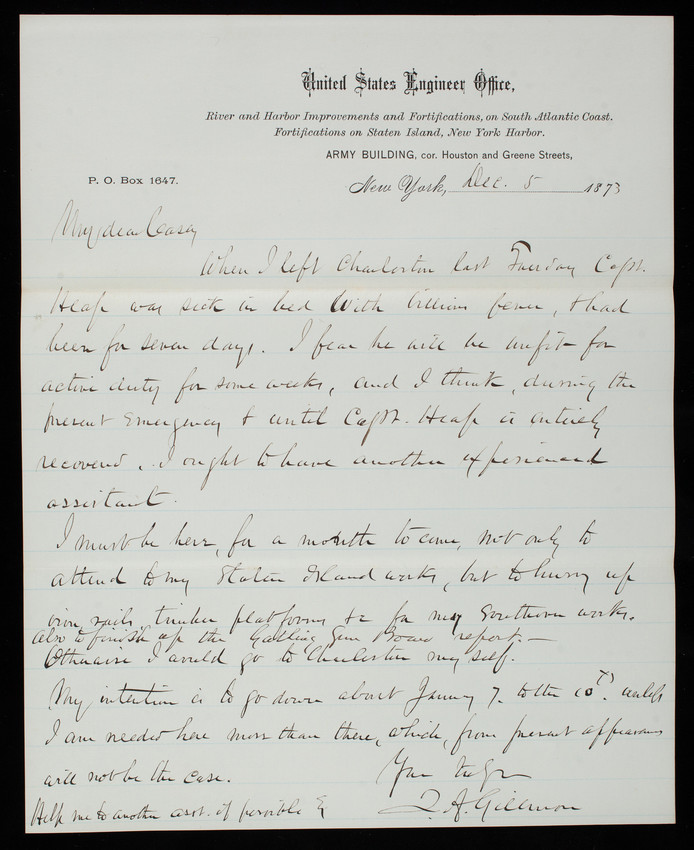 United States Engineer Office,
River and Harbor Improvements and Fortifications, on South Atlantic Coast.
Fortifications on Staten Island, New York Harbor.
ARMY BUILDING, cor. Houston and Greene Streets,
P. O. Box 1647.
New York, Dec. 5 1873
My dear Casey
When I left Charleston last Tuesday Capt.
Heap was sick in bed with billious fever, & had
been for seven days. I fear he will be unfit for
active duty for some weeks, and I think, during the
present emergency & until Capt. Heap is entirely
recovered, I ought to have another experienced
assistant.
I must be here, for a month to come, not only to
attend to my Staten Island works, but to hurry up
iron, rails, timber platforms &c for my Southern works.
also to finish up the Gatling Gun Board report.—
Otherwise I would go to Charleston myself.
My intention is to go down about January 7. to the 10th. unless
I am needed here more than there, which, from present appearances
will not be the case.
Yours truly
Q. A. Gillmore
Help me to another asst. if possible